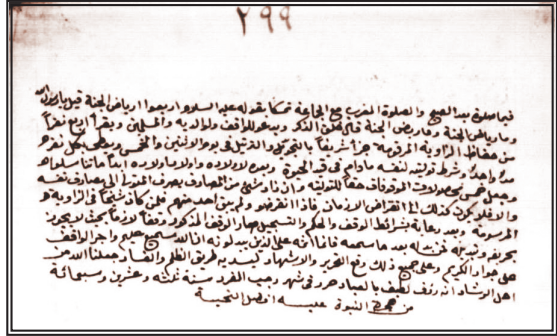 ٢٩٩
فيما صلوة بعد الصبح والصلوة المغرب مع الجماعة تمسكا بقوله عليه السلام ارتعوا ارياض الجنة قيل يا رسول الله
وما رياض الجنة وما رياض الجنة قال حلق الذكر ويدعو للواقف ولوالديه والمسلمين ويقرأ اربع نفرا
من حفاظ الزاوية المرقومة جزأ شريفا بالتجويد والترتيل في يوم الاثنين والخميس ويعطى بكل نفر
واحدا وشرط توليته لنفسه مادام في قيد الحيوة وبعده لاولاده واولاد اولاده ابدا ما تناسلوا
وجعل محصولات الموقوفات حقا للتولية وان زاد شئ من المصارف يصرف المتولي الى مصارف نفسه
والا فلا يكون كذلك الى انقراض الازمان فاذا انقرضوا ولم يبق احد منهم فلمن كان شيخا في الزاوية
المرقومة وبعد رعاية شرائط الوقف والحكم والتسجيل صار الوقف المذكور وقفا لازما بحيث لا يجوز
تحريفه وتبديله فمن بدله بعد ما سمعه فانما اثمه على الذين يبدلونه ان الله سميع عليم واجر الواقف
على جواد الكريم وعلى جميع ذلك رفع التحرير والاشهاد ليسد به طريق الظلم والفساد جعلنا الله من
اهل الرشاد انه رؤف لطيف بالعباد حرر في شهر رجب الفرد سنة ثلثة وعشرين وسبعمائة
من هجرة النبوة عليه افضل التحية